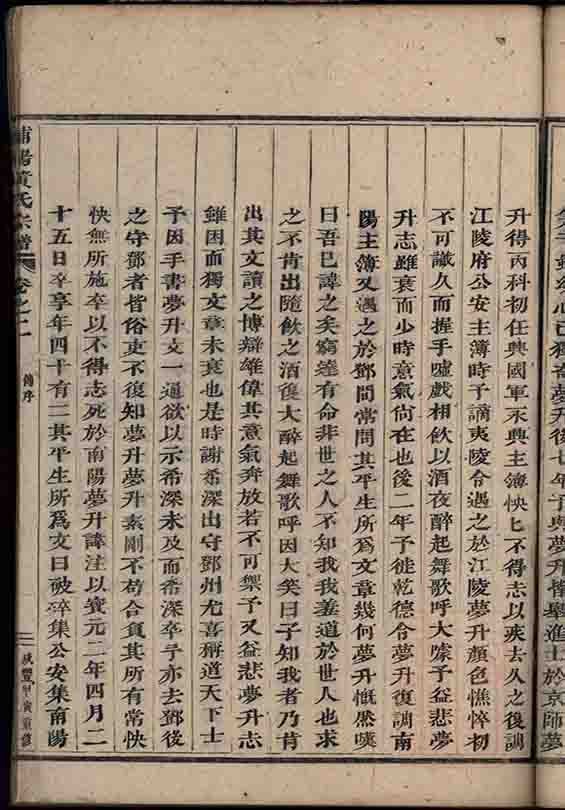 升得丙科初任興國軍永興主簿怏匕不得志以疾去久之復調
江陵府公安主簿時予謫夷陵令遇之於江陵夢升顏色憔悴初
不可識久而握手噓戲相飲以酒夜醉起舞歌呼大噱予益悲夢
升志雖衰而少時意氣尙在也後二年予徙乾德令夢升復調南
陽主簿又遇之於鄧間常問其平生所爲文章幾何夢升慨然嘆
曰吾已諱之矣窮達有命非世之人不知我我羞道於世人也求
之不肯出隨飲之酒復大醉起舞歌呼因大笑曰子知我者乃肯
出其文讀之博辯雄偉其意氣奔放若不可禦予又益悲夢升志
雖困而獨文章未衰也是時謝希深出守鄧州尤喜稱道天下士
予因手書夢升文一通欲以示希深未及而希深卒予亦去鄧後
之守鄧者皆俗吏不復知夢升夢升素剛不苟合負其所有常怏
怏無所施卒以不得志死於南陽夢升諱注以寶元二年四月二
十五日卒享年四十有二其平生所爲文曰破碎集公安集南陽
黃氏宗譜
卷之二
舊序
二
咸豐甲寅重修